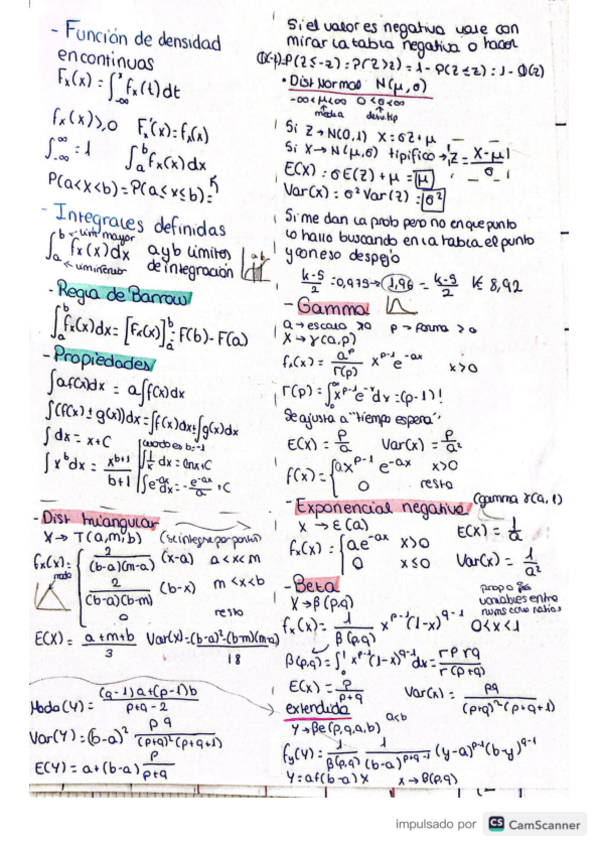 - Función de densidad
en continuas
Fx(x) = ∫_{-∞}^{x} fx(t)dt
fx(x) ≥ 0   F'x(x) = fx(x)
∫_{-∞}^{∞} = 1   ∫_a^b fx(x)dx
P(a<x<b) = P(a≤x≤b) =
- Integrales definidas
∫_a^b fx(x)dx   a y b límites
de integración
b ← lim mayor
a ← lim inferior
a b
- Regla de Barrow
∫_a^b fx(x)dx = [Fx(x)]_a^b = F(b) - F(a)
- Propiedades
∫af(x)dx = a∫f(x)dx
∫(f(x) ± g(x))dx = ∫f(x)dx ± ∫g(x)dx
∫dx = x + C
cuando es b = -1
∫x^b dx = x^{b+1}/(b+1)
∫1/x dx = lnx + C
∫e^{-ax}dx = -e^{-ax}/a + C
- Dist triangular
X → T(a,m,b)   (se integra por partes)
fx(x) = { 2/((b-a)(m-a)) (x-a)   a<x<m
2/((b-a)(b-m)) (b-x)   m<x<b
0   resto
moda
E(X) = (a+m+b)/3   Var(x) = ((b-a)² - (b-m)(m-a))/18
Moda(Y) = ((q-1)a + (p-1)b)/(p+q-2)
Var(Y) = (b-a)² pq/((p+q)²(p+q+1))
E(Y) = a + (b-a) p/(p+q)
Si el valor es negativo vale con
mirar la tabla negativa o hacer
Φ(-z) = P(Z≤-z) = P(Z≥z) = 1 - P(Z≤z) = 1 - Φ(z)
• Dist Normal N(μ,σ)
-∞<μ<∞   0<σ<∞
media   desv. tip
Si Z → N(0,1)   X = σZ + μ
Si X → N(μ,σ) tipifico → Z = (X-μ)/σ
E(X) = σE(Z) + μ = μ
Var(X) = σ² Var(Z) = σ²
Si me dan la prob pero no en que punto
lo hallo buscando en la tabla el punto
y con eso despejo
(k-5)/2 = 0,975 → 1,96 = (k-5)/2   K = 8,92
- Gamma
a → escala >0   p → forma >0
X → γ(a,p)
fx(x) = a^p/Γ(p) x^{p-1} e^{-ax}   x>0
Γ(p) = ∫_0^∞ x^{p-1} e^{-x} dx = (p-1)!
Se ajusta a "tiempo espera"
E(X) = p/a   Var(x) = p/a²
f(x) = { ax^{p-1} e^{-ax}   x>0
0   resto
- Exponencial negativa (gamma γ(a,1)
X → ε(a)   E(X) = 1/a
fx(x) = { ae^{-ax}   x>0
0   x≤0   Var(x) = 1/a²
- Beta
X → β(p,q)
variables entre
fx(x) = 1/β(p,q) x^{p-1}(1-x)^{q-1}   0<x<1
β(p,q) = ∫_0^1 x^{p-1}(1-x)^{q-1}dx = Γp Γq/Γ(p+q)
E(x) = p/(p+q)   Var(x) = pq/((p+q)²(p+q+1))
extendida
Y → βe(p,q,a,b)   a<b
fy(Y) = 1/β(p,q) 1/(b-a)^{p+q-1} (y-a)^{p-1}(b-y)^{q-1}
Y = a+(b-a)X   X → β(p,q)
impulsado por CS CamScanner